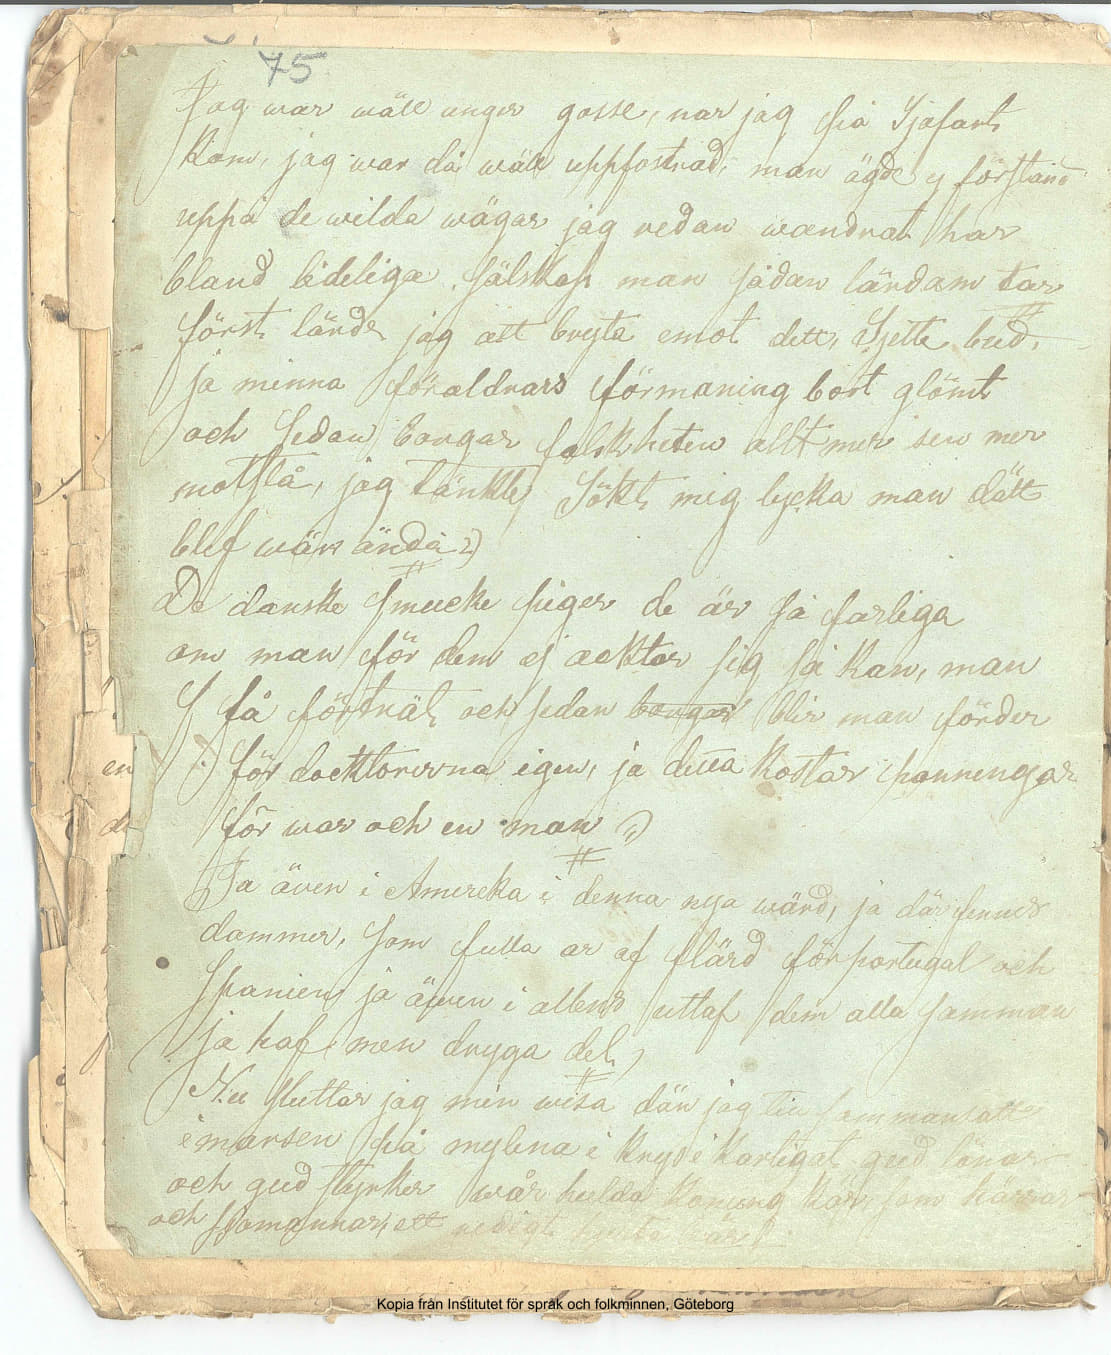 75
Jag war wäll unger gosse, nar jag på Sjöfart
Kom, jag war då wäll uppfostrad, man ägde ej förstånd
uppå de wilda wägar jag redan wandrat har
bland lideliga sälskap man sådan lärdam tar
först lärde jag att bryta emot dett, Sjette bud,
ja minna föraldrars förmaning bort glömt
och sedan bongar falskheten allt mer sen mer
motstå, jag tänkte Sökt mig lycka man dätt
blef wärr ändå
De danske smucke piger de är så farliga
om man för dem ej acktar sig så kan, man
få förträt och sedan bongar blir man förder
för docktorerna igen, ja detta kostar panningar
för war och en man
Ja även i Amereka i denna nya wärd, ja där finnes
dammer, som fulla ar af flärd för portugal och
Spanien ja äwen i allens uttaf dem alla samman
ja haf men dryga del
Nu sluttar jag min wisa dän jag sammansatt
i marsen på i kryss gud lönar
och gud styrker wår hulda konung Kär, som
och
en
de
Kopia från Institutet för språk och folkminnen, Göteborg